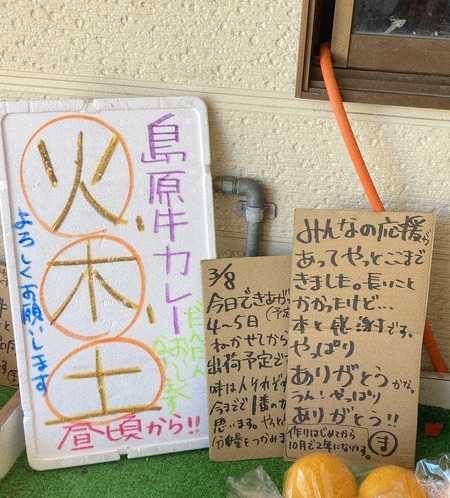 島原牛カレー
火、
木、
土
だんだん
おいしく
なります
よろしくお願いします
昼頃から!!
3/8
今日できあが
(予定
4〜5日
ねかせてから
出荷予定で
味は人それぞれ
今までで1番の
思います。やっ
分量をつかみま
みんなの応援が
あってやっとここまで
きました。長いこと
かかったけど…
本と感謝です。
やっぱり
ありがとうかな。
うん!やっぱり
ありがとう!!
作りはじめてから
10月で2年になります。
ま